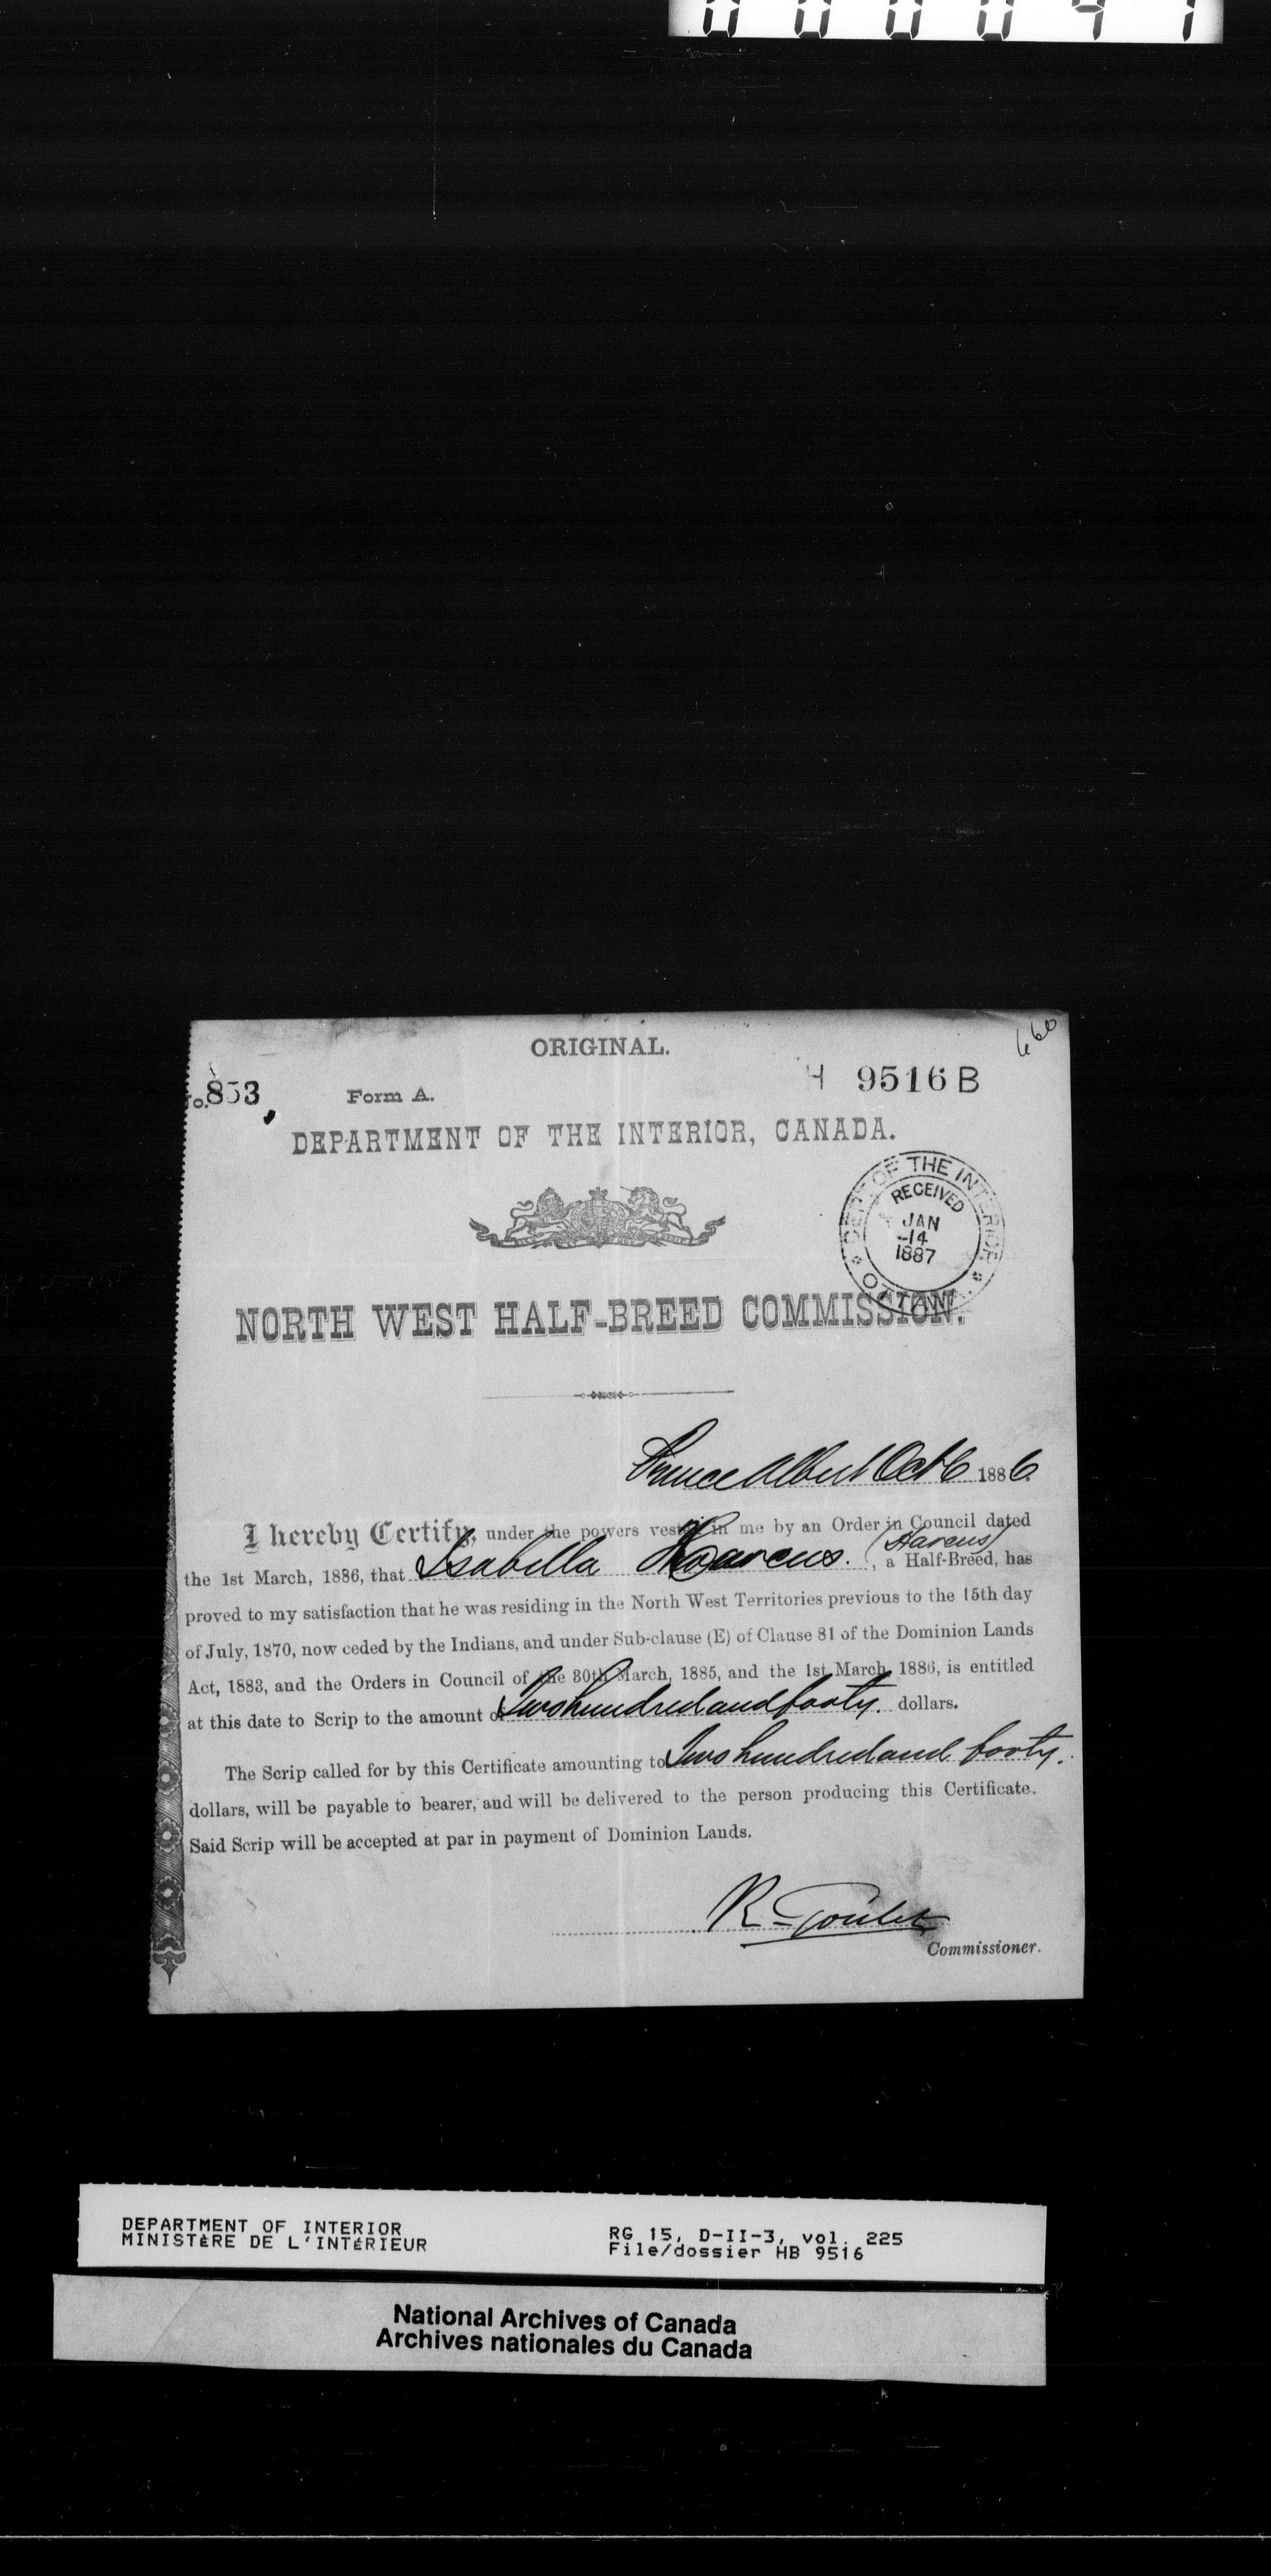 000041
ORIGINAL.
660
No. 853
Form A.
H 9516 B
DEPARTMENT OF THE INTERIOR, CANADA.
DEPT. OF THE INTERIOR
RECEIVED
JAN
-14
1887
OTTAWA
NORTH WEST HALF-BREED COMMISSION.
Prince Albert Oct 6 1886.
I hereby Certify, under the powers vested in me by an Order in Council dated
(Harcus)
the 1st March, 1886, that Isabella Harcus., a Half-Breed, has
proved to my satisfaction that he was residing in the North West Territories previous to the 15th day
of July, 1870, now ceded by the Indians, and under Sub-clause (E) of Clause 81 of the Dominion Lands
Act, 1883, and the Orders in Council of the 30th March, 1885, and the 1st March, 1886, is entitled
at this date to Scrip to the amount of Two hundred and forty. dollars.
The Scrip called for by this Certificate amounting to Two hundred and forty.
dollars, will be payable to bearer, and will be delivered to the person producing this Certificate.
Said Scrip will be accepted at par in payment of Dominion Lands.
R. Goulet
Commissioner.
DEPARTMENT OF INTERIOR
MINISTÈRE DE L'INTÉRIEUR
RG 15, D-II-3, vol. 225
File/dossier HB 9516
National Archives of Canada
Archives nationales du Canada